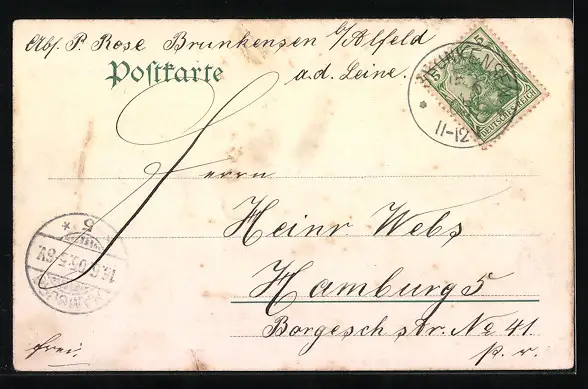 Abs. P. Rose Brunkensen b/Alfeld
Postkarte
a.d. Leine.
BRUNKENSEN
11-12
5
DEUTSCHES REICH
Herrn
Heinr Webs
Hamburg 5
Borgesch str. No 41
p. r.
frei.
HAMBURG
5